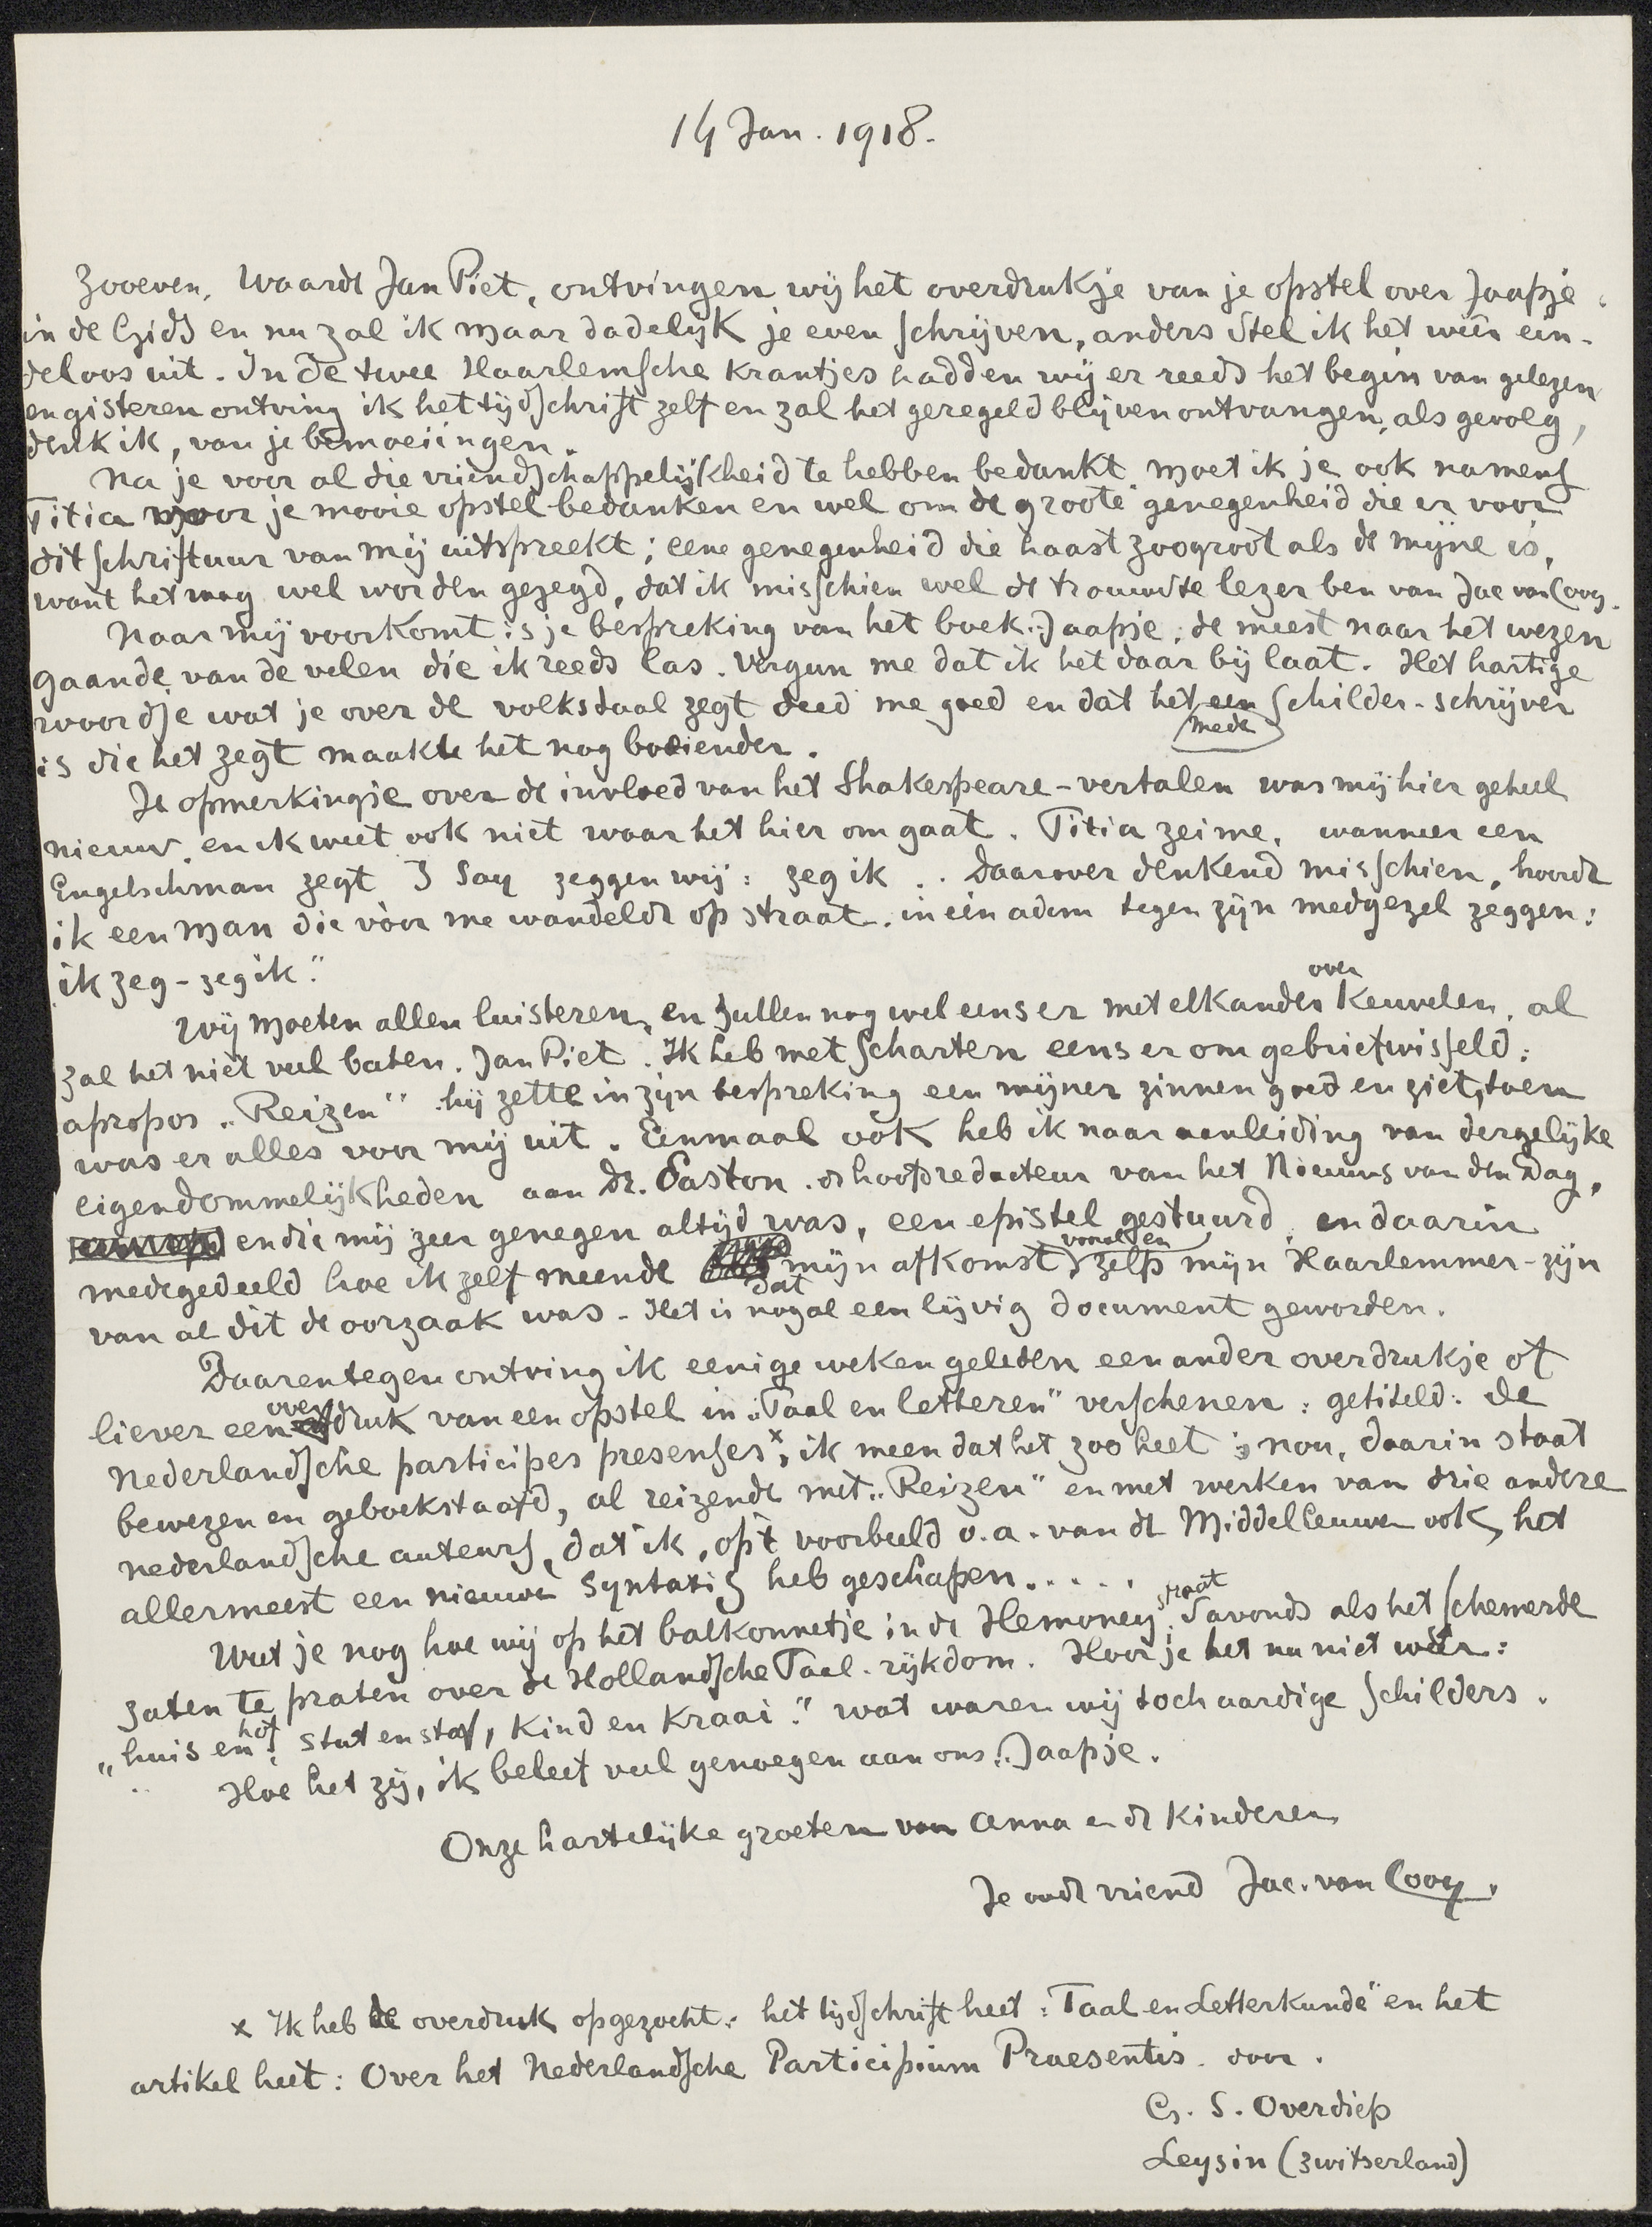 14 Jan. 1918.
Zooeven, Waarde Jan Piet, ontvingen wij het overdrukje van je opstel over Jaapje
in de Gids en nu zal ik maar dadelijk je even schrijven, anders stel ik het weêr ein-
deloos uit. In de twee Haarlemsche krantjes hadden wij er reeds het begin van gelezen
en gisteren ontving ik het tijdschrift zelf en zal het geregeld blijven ontvangen, als gevolg,
denk ik, van je bemoeiingen.
Na je voor al die vriendschappelijkheid te hebben bedankt moet ik je ook namens
Titia voor je mooie opstel bedanken en wel om de groote genegenheid die er voor
dit schriftuur van mij uitspreekt; eene genegenheid die haast zoo groot als de mijne is,
want het mag wel worden gezegd, dat ik misschien wel de trouwste lezer ben van Jac van Looy.
Naar mij voorkomt is je bespreking van het boek „Jaapje, de meest naar het wezen
gaande van de velen die ik reeds las. Vergun me dat ik het daar bij laat. Het hartige
woordje wat je over de volkstaal zegt deed me goed en dat het een schilder-schrijver
mede
is die het zegt maakte het nog boeiender.
Je opmerkingje over de invloed van het Shakespeare-vertalen was mij hier geheel
nieuw en ik weet ook niet waar het hier om gaat. Titia zei me, wanneer een
Engelschman zegt I say zeggen wij: zeg ik.. Daarover denkend misschien, hoorde
ik een man die vóór me wandelde op straat in één adem tegen zijn medgezel zeggen:
ik zeg-zeg ik."
over
Wij moeten allen luisteren, en zullen nog wel eens er met elkander keuvelen, al
zal het niet veel baten. Jan Piet. Ik heb met Scharten eens er om gebriefwisseld:
apropos „Reizen" hij zette in zijn bespreking een mijner zinnen goed en ziet, toen
was er alles voor mij uit. Eenmaal ook heb ik naar aanleiding van dergelijke
eigendommelijkheden aan Dr. Easton. de hoofdredacteur van het Nieuws van den Dag,
en die mij zeer genegen altijd was, een epistel gestuurd, en daarin
medegedeeld hoe ik zelf meende dat mijn afkomst vooral en zelfs mijn Haarlemmer-zijn
van al dit de oorzaak was. Het is nogal een lijvig document geworden.
Daarentegen ontving ik eenige weken geleden een ander overdrukje of
liever een overdruk van een opstel in „Taal en letteren" verschenen: getiteld: de
Nederlandsche participes presenses x, ik meen dat het zoo heet; nou, daarin staat
bewezen en geboekstaafd, al reizende met „Reizen" en met werken van drie andere
nederlandsche auteurs, dat ik, op 't voorbeeld o.a. van de Middelleeuwen ook, het
allermeest een nieuwe syntaxis heb geschapen.....
Weet je nog hoe wij op het balkonnetje in de Hemoneystraat, 's avonds als het schemerde
zaten te praten over de Hollandsche Taal-rijkdom. Hoor je het nu niet wéér:
„huis en hof, stut en staf, Kind en Kraai." wat waren wij toch aardige schilders.
Hoe het zij, ik beleef veel genoegen aan ons „Jaapje.
Onze hartelijke groeten van Anna en de Kinderen
Je oude vriend Jac. van Looy.
x Ik heb de overdruk opgezocht: het tijdschrift heet: Taal en Letterkunde" en het
artikel heet: Over het Nederlandsche Participium Praesentis. door.
G. S. Overdiep
Leysin (Zwitserland)